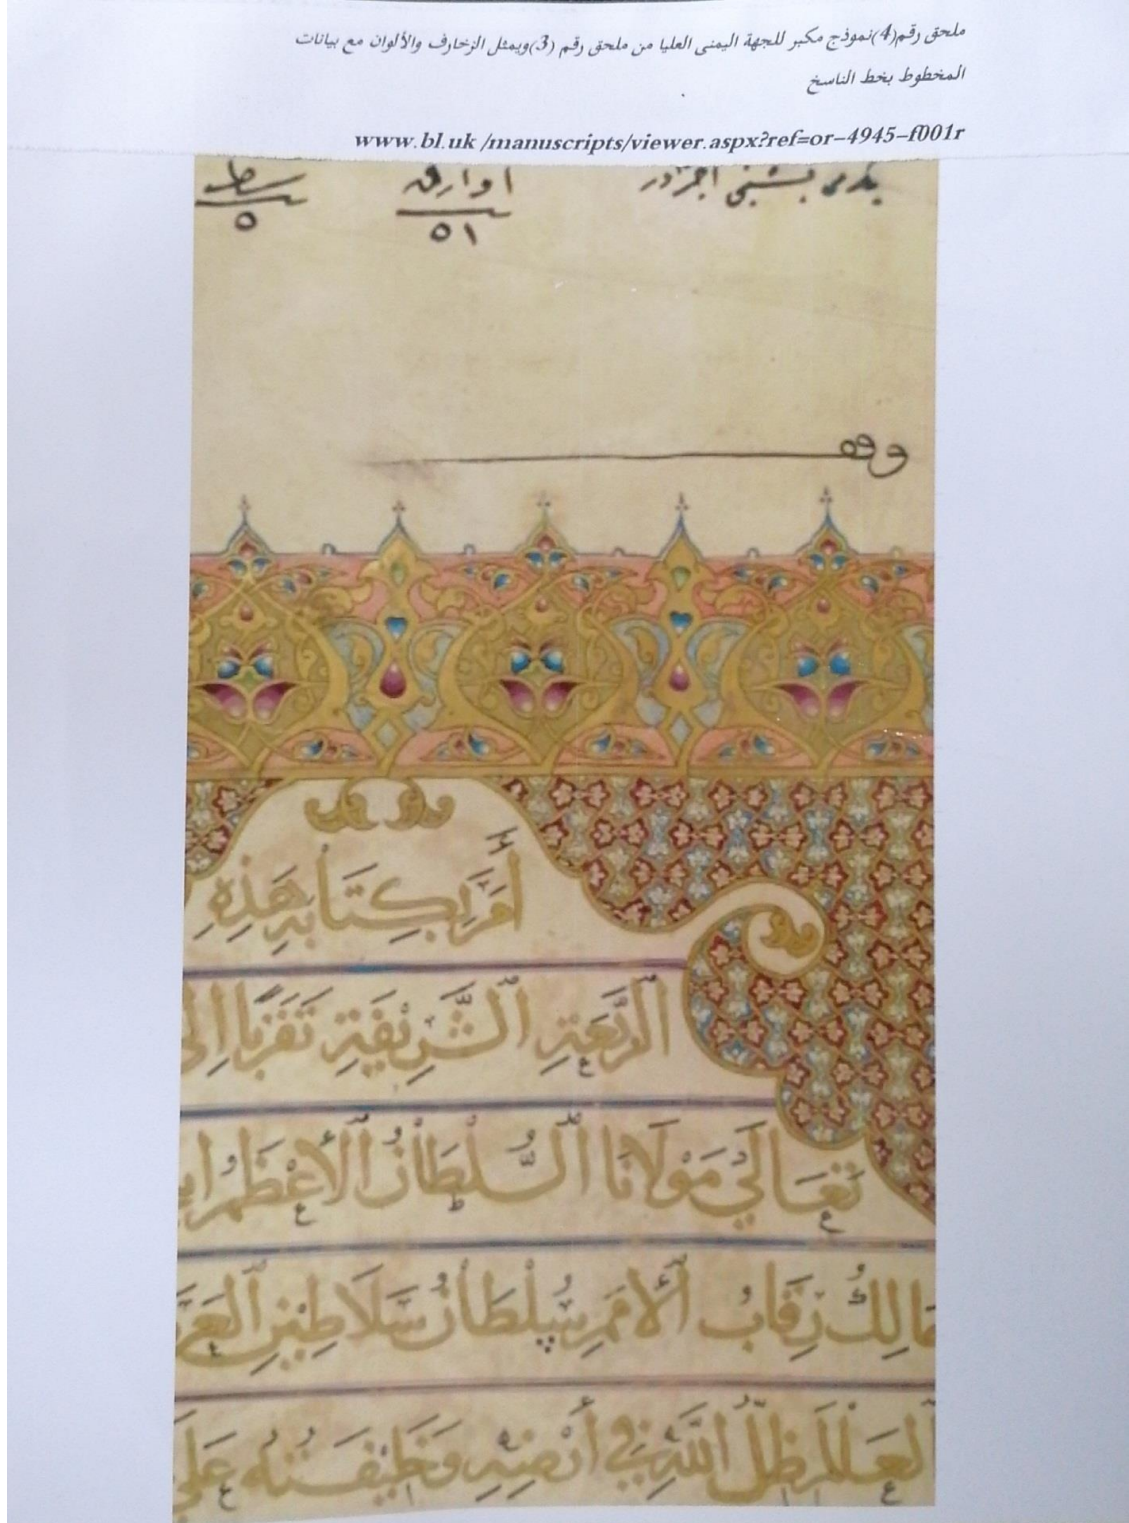 ملحق رقم(4)نموذج مكبر للجهة اليمنى العليا من ملحق رقم (3)ويمثل الزخارف والألوان مع بيانات
المخطوط بخط الناسخ
www.bl.uk /manuscripts/viewer.aspx?ref=or-4945-f001r
اوراق
٥١
سطر
٥
وقف
أَمَرَ بِكِتَابَةِ هَذِهِ
الرَّبْعَةِ الشَّرِيفَةِ تَقَرُّبًا إِلَى
تَعَالَى مَوْلَانَا السُّلْطَانُ الْأَعْظَمُ
مَالِكُ رِقَابِ الْأُمَمِ سُلْطَانُ سَلَاطِينِ الْعَرَ
لعَالَمِ ظِلُّ اللَّهِ فِي أَرْضِهِ وَخَلِيفَتُهُ عَلَى